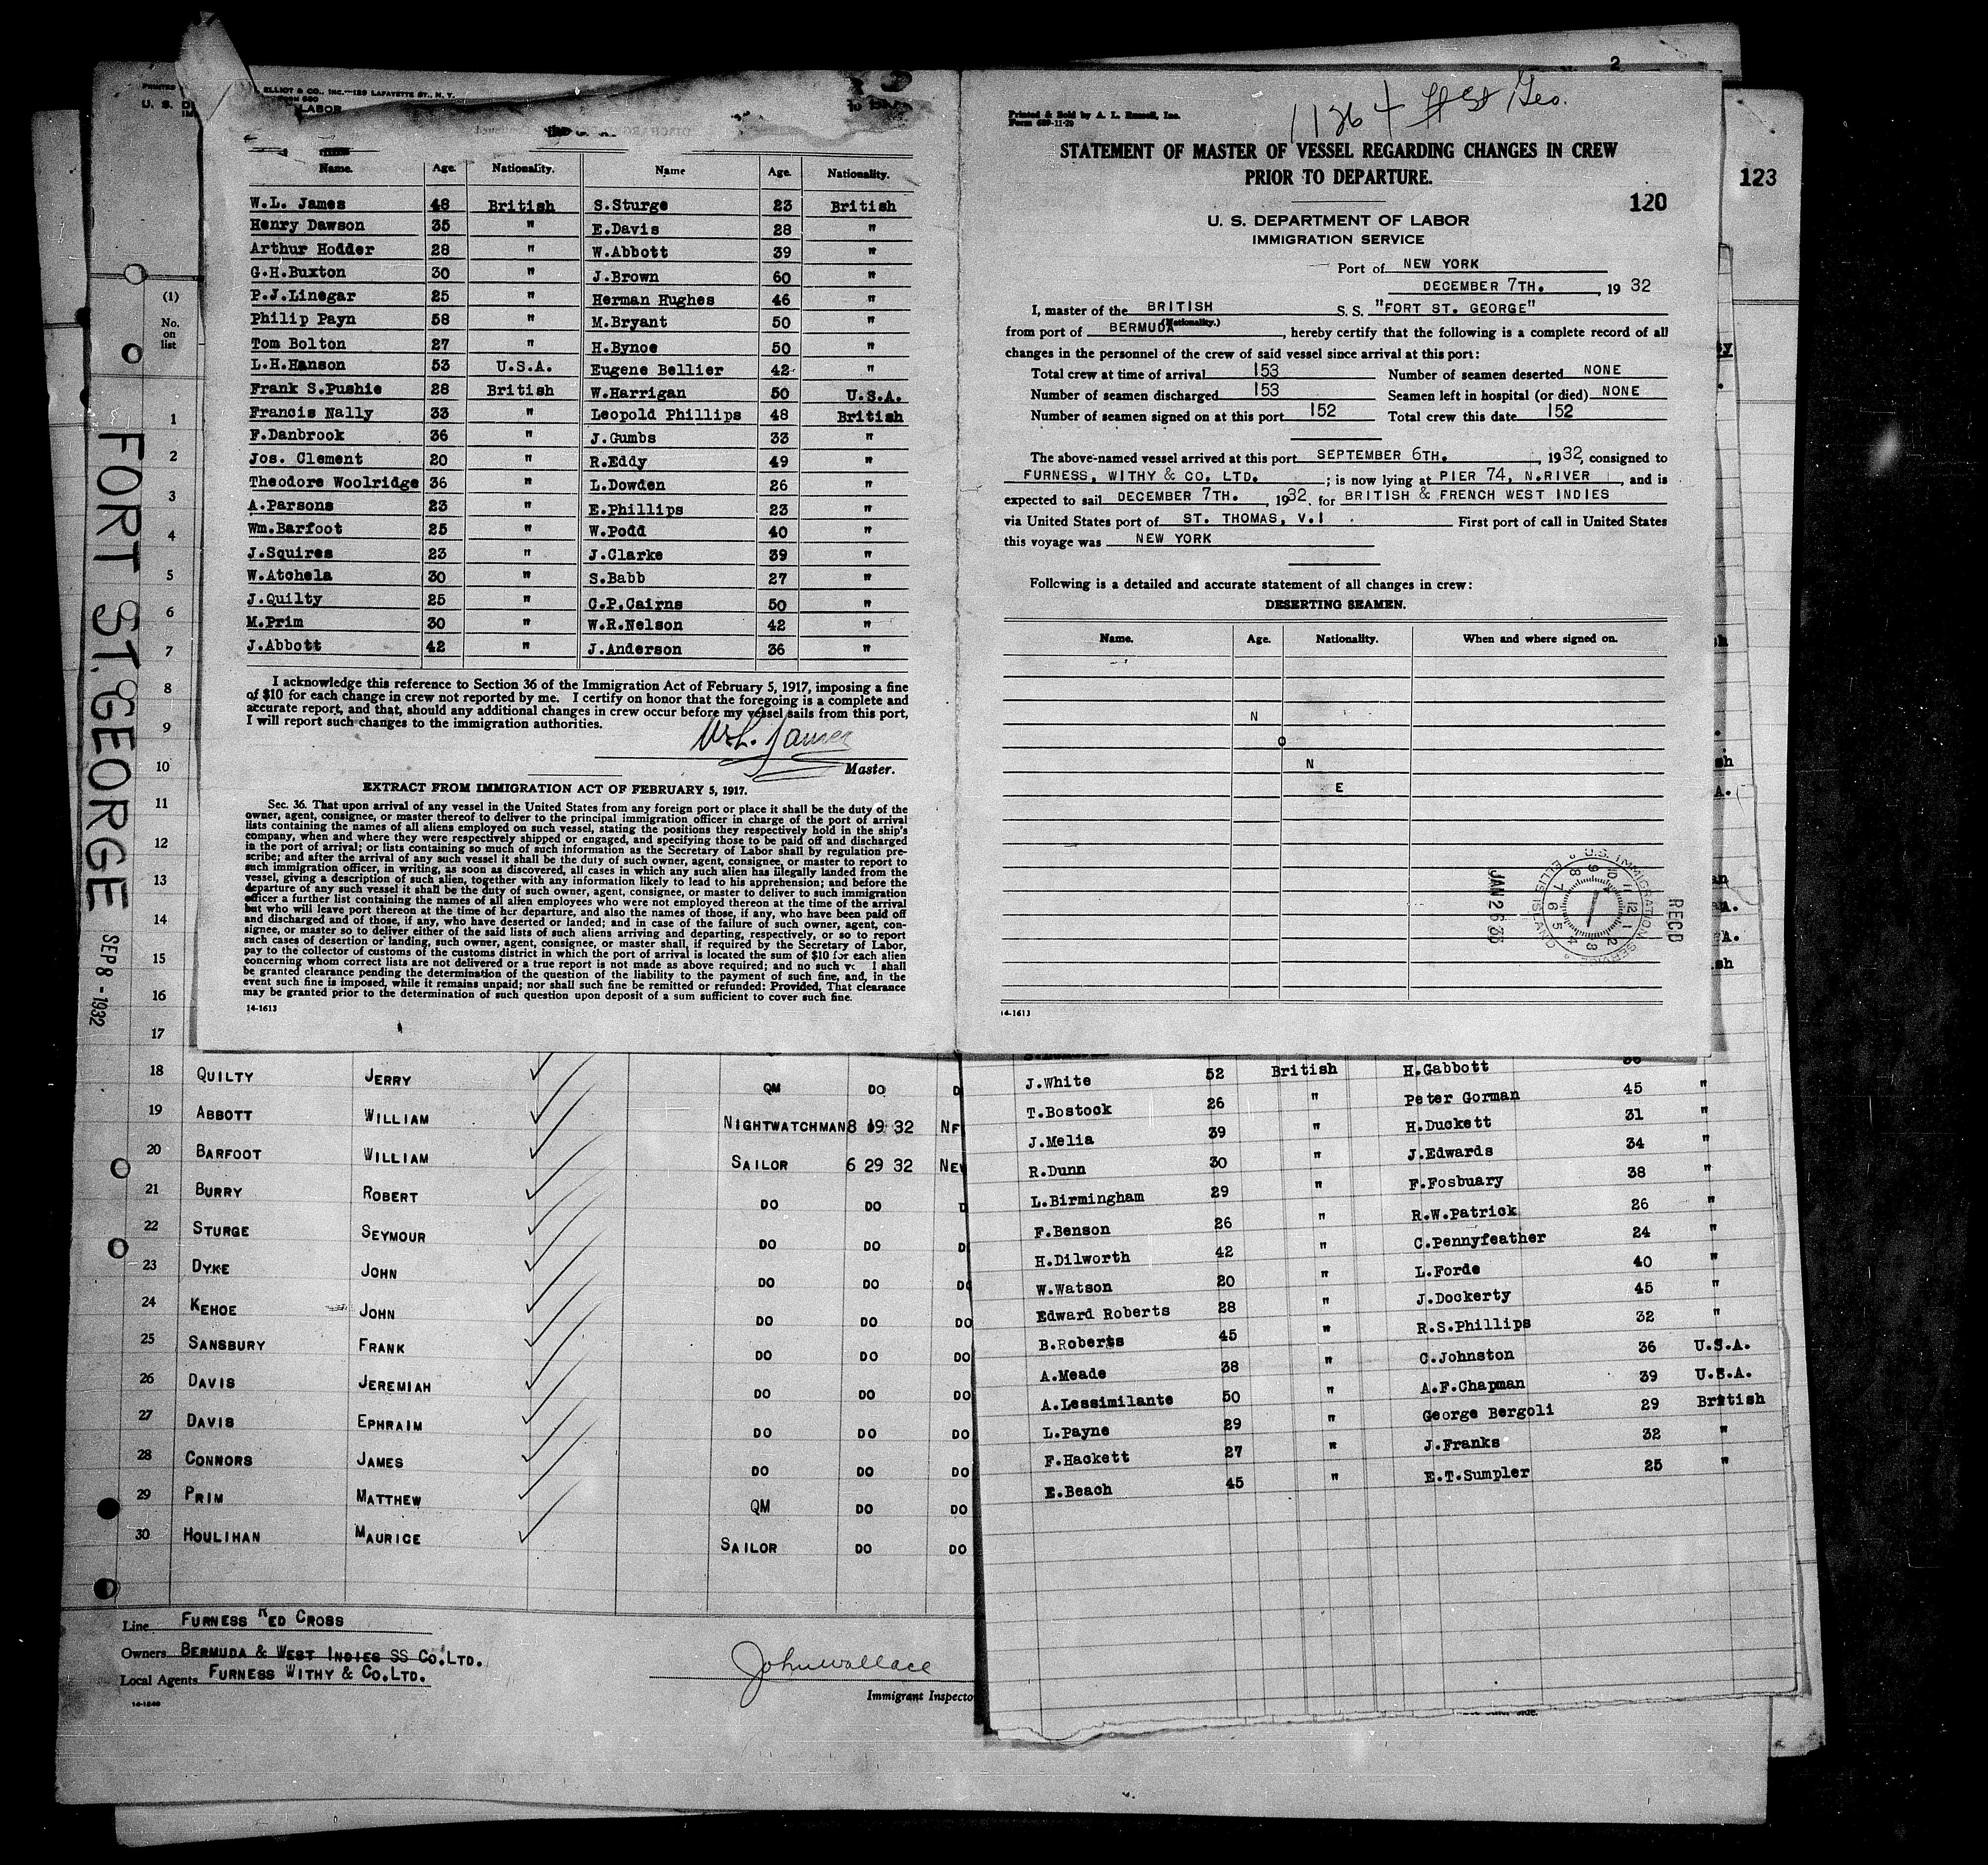 2
ELLIOT & CO., INC.—129 LAFAYETTE ST., N. Y.
U. S. D
LABOR
Name. Age. Nationality. Name Age. Nationality.
W.L. James 48 British S.Sturge 23 British
Henry Dawson 35 " E.Davis 28 "
Arthur Hodder 28 " W.Abbott 39 "
G.H.Buxton 30 " J.Brown 60 "
P.J.Linegar 25 " Herman Hughes 46 "
Philip Payn 58 " M.Bryant 50 "
Tom Bolton 27 " H.Bynoe 50 "
L.H.Hanson 53 U.S.A. Eugene Bellier 42 "
Frank S.Pushie 28 British W.Harrigan 50 U.S.A.
Francis Nally 33 " Leopold Phillips 48 British
F.Danbrook 36 " J.Gumbs 33 "
Jos. Clement 20 " R.Eddy 49 "
Theodore Woolridge 36 " L.Dowden 26 "
A.Parsons 23 " E.Phillips 23 "
Wm.Barfoot 25 " W.Podd 40 "
J.Squires 23 " J.Clarke 39 "
W.Atchela 30 " S.Babb 27 "
J.Quilty 25 " C.P.Cairns 50 "
M.Prim 30 " W.R.Nelson 42 "
J.Abbott 42 " J.Anderson 36 "
I acknowledge this reference to Section 36 of the Immigration Act of February 5, 1917, imposing a fine
of $10 for each change in crew not reported by me. I certify on honor that the foregoing is a complete and
accurate report, and that, should any additional changes in crew occur before my vessel sails from this port,
I will report such changes to the immigration authorities.
W.L. James
Master.
EXTRACT FROM IMMIGRATION ACT OF FEBRUARY 5, 1917.
Sec. 36. That upon arrival of any vessel in the United States from any foreign port or place it shall be the duty of the
owner, agent, consignee, or master thereof to deliver to the principal immigration officer in charge of the port of arrival
lists containing the names of all aliens employed on such vessel, stating the positions they respectively hold in the ship's
company, when and where they were respectively shipped or engaged, and specifying those to be paid off and discharged
in the port of arrival; or lists containing so much of such information as the Secretary of Labor shall by regulation pre-
scribe; and after the arrival of any such vessel it shall be the duty of such owner, agent, consignee, or master to report to
such immigration officer, in writing, as soon as discovered, all cases in which any such alien has illegally landed from the
vessel, giving a description of such alien, together with any information likely to lead to his apprehension; and before the
departure of any such vessel it shall be the duty of such owner, agent, consignee, or master to deliver to such immigration
officer a further list containing the names of all alien employees who were not employed thereon at the time of the arrival
but who will leave port thereon at the time of her departure, and also the names of those, if any, who have been paid off
and discharged and of those, if any, who have deserted or landed; and in case of the failure of such owner, agent, con-
signee, or master so to deliver either of the said lists of such aliens arriving and departing, respectively, or so to report
such cases of desertion or landing, such owner, agent, consignee, or master shall, if required by the Secretary of Labor,
pay to the collector of customs of the customs district in which the port of arrival is located the sum of $10 for each alien
concerning whom correct lists are not delivered or a true report is not made as above required; and no such ve l shall
be granted clearance pending the determination of the question of the liability to the payment of such fine, and, in the
event such fine is imposed, while it remains unpaid; nor shall such fine be remitted or refunded: Provided, That clearance
may be granted prior to the determination of such question upon deposit of a sum sufficient to cover such fine.
14-1613
Printed & Sold by A. L. Russell, Inc.
Form 689-11-29
STATEMENT OF MASTER OF VESSEL REGARDING CHANGES IN CREW
PRIOR TO DEPARTURE.
120
123
U. S. DEPARTMENT OF LABOR
IMMIGRATION SERVICE
Port of NEW YORK
DECEMBER 7TH. , 19 32
I, master of the BRITISH S. S. "FORT ST. GEORGE"
(Nationality.)
from port of BERMUDA, hereby certify that the following is a complete record of all
changes in the personnel of the crew of said vessel since arrival at this port:
Total crew at time of arrival 153 Number of seamen deserted NONE
Number of seamen discharged 153 Seamen left in hospital (or died) NONE
Number of seamen signed on at this port 152 Total crew this date 152
The above-named vessel arrived at this port SEPTEMBER 6TH. , 1932, consigned to
FURNESS, WITHY & CO. LTD. ; is now lying at PIER 74, N.RIVER , and is
expected to sail DECEMBER 7TH. , 1932. for BRITISH & FRENCH WEST INDIES
via United States port of ST. THOMAS, V.I . First port of call in United States
this voyage was NEW YORK
Following is a detailed and accurate statement of all changes in crew:
DESERTING SEAMEN.
Name. Age. Nationality. When and where signed on.
N
O
N
E
RECD
U.S. IMMIGRATION SERVICE ELLIS ISLAND
JAN 26 33
14-1613
FORT ST. GEORGE SEP 8 - 1932
(1)
No.
on
list
1
2
3
4
5
6
7
8
9
10
11
12
13
14
15
16
17
18 QUILTY JERRY QM DO D
19 ABBOTT WILLIAM NIGHTWATCHMAN 8 19 32 NF
20 BARFOOT WILLIAM SAILOR 6 29 32 NEW
21 BURRY ROBERT DO DO D
22 STURGE SEYMOUR DO DO D
23 DYKE JOHN DO DO DO
24 KEHOE JOHN DO DO DO
25 SANSBURY FRANK DO DO DO
26 DAVIS JEREMIAH DO DO DO
27 DAVIS EPHRAIM DO DO DO
28 CONNORS JAMES DO DO DO
29 PRIM MATTHEW QM DO DO
30 HOULIHAN MAURICE SAILOR DO DO
Line FURNESS RED CROSS
Owners BERMUDA & WEST INDIES SS CO.LTD.
Local Agents FURNESS WITHY & CO.LTD.
14-1240
John Wallace
Immigrant Inspecto
J.White 52 British H.Gabbott 36
T.Bostock 26 " Peter Gorman 45 "
J.Melia 39 " H.Duckett 31 "
R.Dunn 30 " J.Edwards 34 "
L.Birmingham 29 " F.Fosbuary 38 "
F.Benson 26 " R.W.Patrick 26 "
H.Dilworth 42 " C.Pennyfeather 24 "
W.Watson 20 " L.Forde 40 "
Edward Roberts 28 " J.Dockerty 45 "
B.Roberts 45 " R.S.Phillips 32 "
A.Meade 38 " C.Johnston 36 U.S.A.
A.Lessimilante 50 " A.F.Chapman 39 U.S.A.
L.Payne 29 " George Bergoli 29 British
F.Hackett 27 " J.Franks 32 "
E.Beach 45 " E.T.Sumpler 25 "